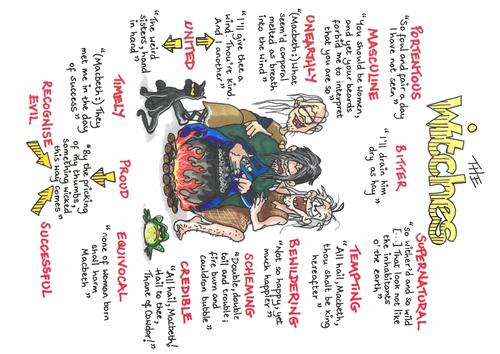 THE
Witches
PORTENTOUS
"So foul and fair a day
I have not seen"
MASCULINE
"You should be women,
and yet your beards
forbid me to interpret
that you are so"
UNEARTHLY
(Macbeth:) What
seem'd corporal
melted as breath
into the wind"
"I'll give thee a
wind. Thou're kind.
And I another"
UNITED
"The weird
sisters, hand
in hand"
BITTER
"I'll drain him
dry as hay"
SUPERNATURAL
"so wither'd and so wild
[...] That look not like
the inhabitants
o' the earth"
TEMPTING
"All hail, Macbeth,
thou shalt be king
hereafter"
BEWILDERING
"Not so happy, yet
much happier"
SCHEMING
"Double, double
toil and trouble;
fire burn and
cauldron bubble"
CREDIBLE
"All hail, Macbeth!
Hail to thee,
Thane of Cawdor!"
TIMELY
"(Macbeth:) They
met me in the day
of success"
PROUD
"By the pricking
of my thumbs,
something wicked
this way comes"
RECOGNISE
EVIL
SUCCESSFUL
EQUIVOCAL
"none of woman born
shall harm
Macbeth"